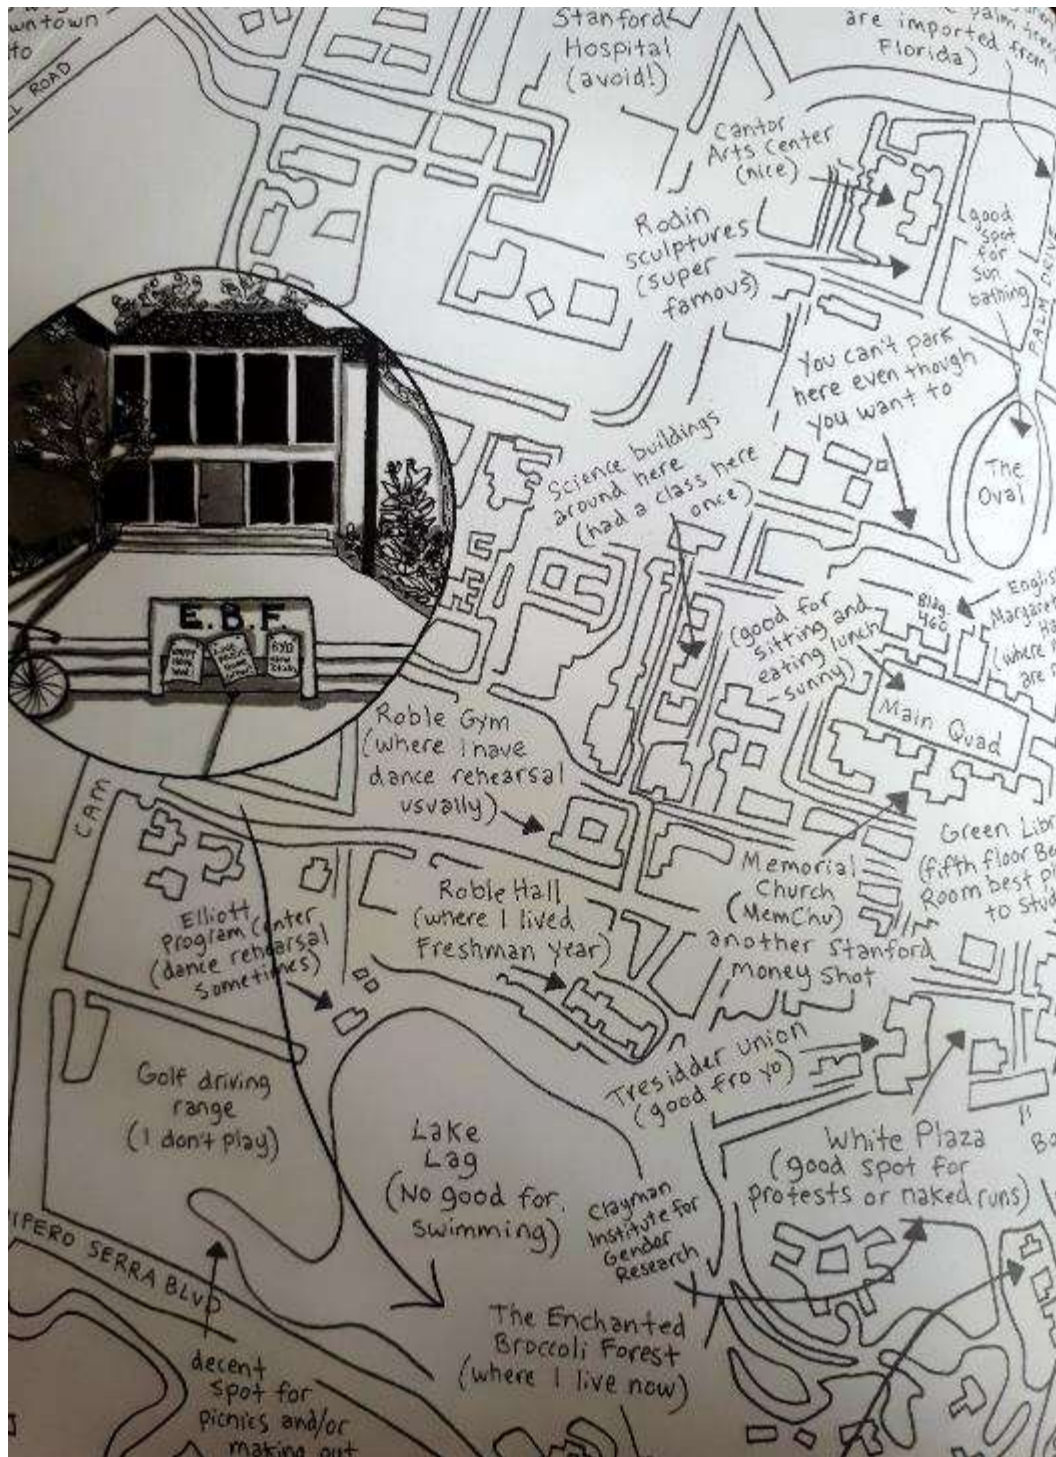 downtown
to
ROAD
Stanford
Hospital
(avoid!)
palm trees
are imported from
Florida)
Cantor
Arts Center
(nice)
Rodin
sculptures
(super
famous)
good
spot
for
sun
bathing
PALM DRIVE
You can't park
here even though
you want to
The
Oval
Science buildings
around here
(had a class here
once)
(good for
sitting and
eating lunch
- sunny)
Bldg.
460
Englis
Margaret
(where
are
Main Quad
E.B.F.
Roble Gym
(where I have
dance rehearsal
usually)
CAM
Green Lib
(fifth floor Be
Room best
to stud
Memorial
Church
(MemChu)
another Stanford
money shot
Roble Hall
(where I lived
Freshman year)
Elliott
Program Center
(dance rehearsal
sometimes)
Tresidder Union
(good fro yo)
Golf driving
range
(I don't play)
Lake
Lag
(No good for
swimming)
White Plaza
(good spot for
protests or naked runs)
Clayman
Institute for
Gender
Research
IPERO SERRA BLVD
The Enchanted
Broccoli Forest
(where I live now)
decent
spot for
picnics and/or
making out